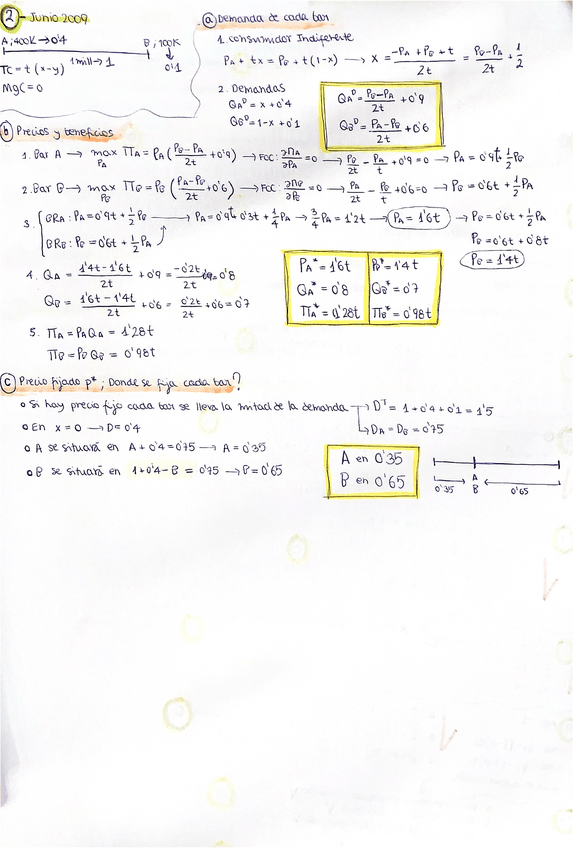 2 - Junio 2009
A; 400K → 0'4
B; 100K
↓
0'1
1 mill → 1
TC = t (x-y)
MgC = 0
a Demanda de cada bar
1. Consumidor Indiferente
PA + tx = PB + t(1-x) → x = (-PA + PB + t)/2t = (PB-PA)/2t + 1/2
2. Demandas
QA^D = x + 0'4
QB^D = 1-x + 0'1
QA^D = (PB-PA)/2t + 0'9
QB^D = (PA-PB)/2t + 0'6
b Precios y beneficios
1. Bar A → max PA ΠA = PA ((PB-PA)/2t + 0'9) → FOC: ∂ΠA/∂PA = 0 → PB/2t - PA/t + 0'9 = 0 → PA = 0'9t + 1/2 PB
2. Bar B → max PB ΠB = PB ((PA-PB)/2t + 0'6) → FOC: ∂ΠB/∂PB = 0 → PA/2t - PB/t + 0'6 = 0 → PB = 0'6t + 1/2 PA
3. { BRA: PA = 0'9t + 1/2 PB → PA = 0'9t + 0'3t + 1/4 PA → 3/4 PA = 1'2t → PA = 1'6t → PB = 0'6t + 1/2 PA
BRB: PB = 0'6t + 1/2 PA
PB = 0'6t + 0'8t
PB = 1'4t
4. QA = (1'4t - 1'6t)/2t + 0'9 = -0'2t/2t + 0'9 = 0'8
QB = (1'6t - 1'4t)/2t + 0'6 = 0'2t/2t + 0'6 = 0'7
PA* = 1'6t PB* = 1'4t
QA* = 0'8 QB* = 0'7
ΠA* = 1'28t ΠB* = 0'98t
5. ΠA = PA QA = 1'28t
ΠB = PB QB = 0'98t
c Precio fijado p*; Donde se fija cada bar?
• Si hay precio fijo cada bar se lleva la mitad de la demanda → D^T = 1 + 0'4 + 0'1 = 1'5
→ DA = DB = 0'75
• En x = 0 → D = 0'4
• A se situará en A + 0'4 = 0'75 → A = 0'35
• B se situará en 1 + 0'4 - B = 0'75 → B = 0'65
A en 0'35
B en 0'65
0'35 A
B 0'65